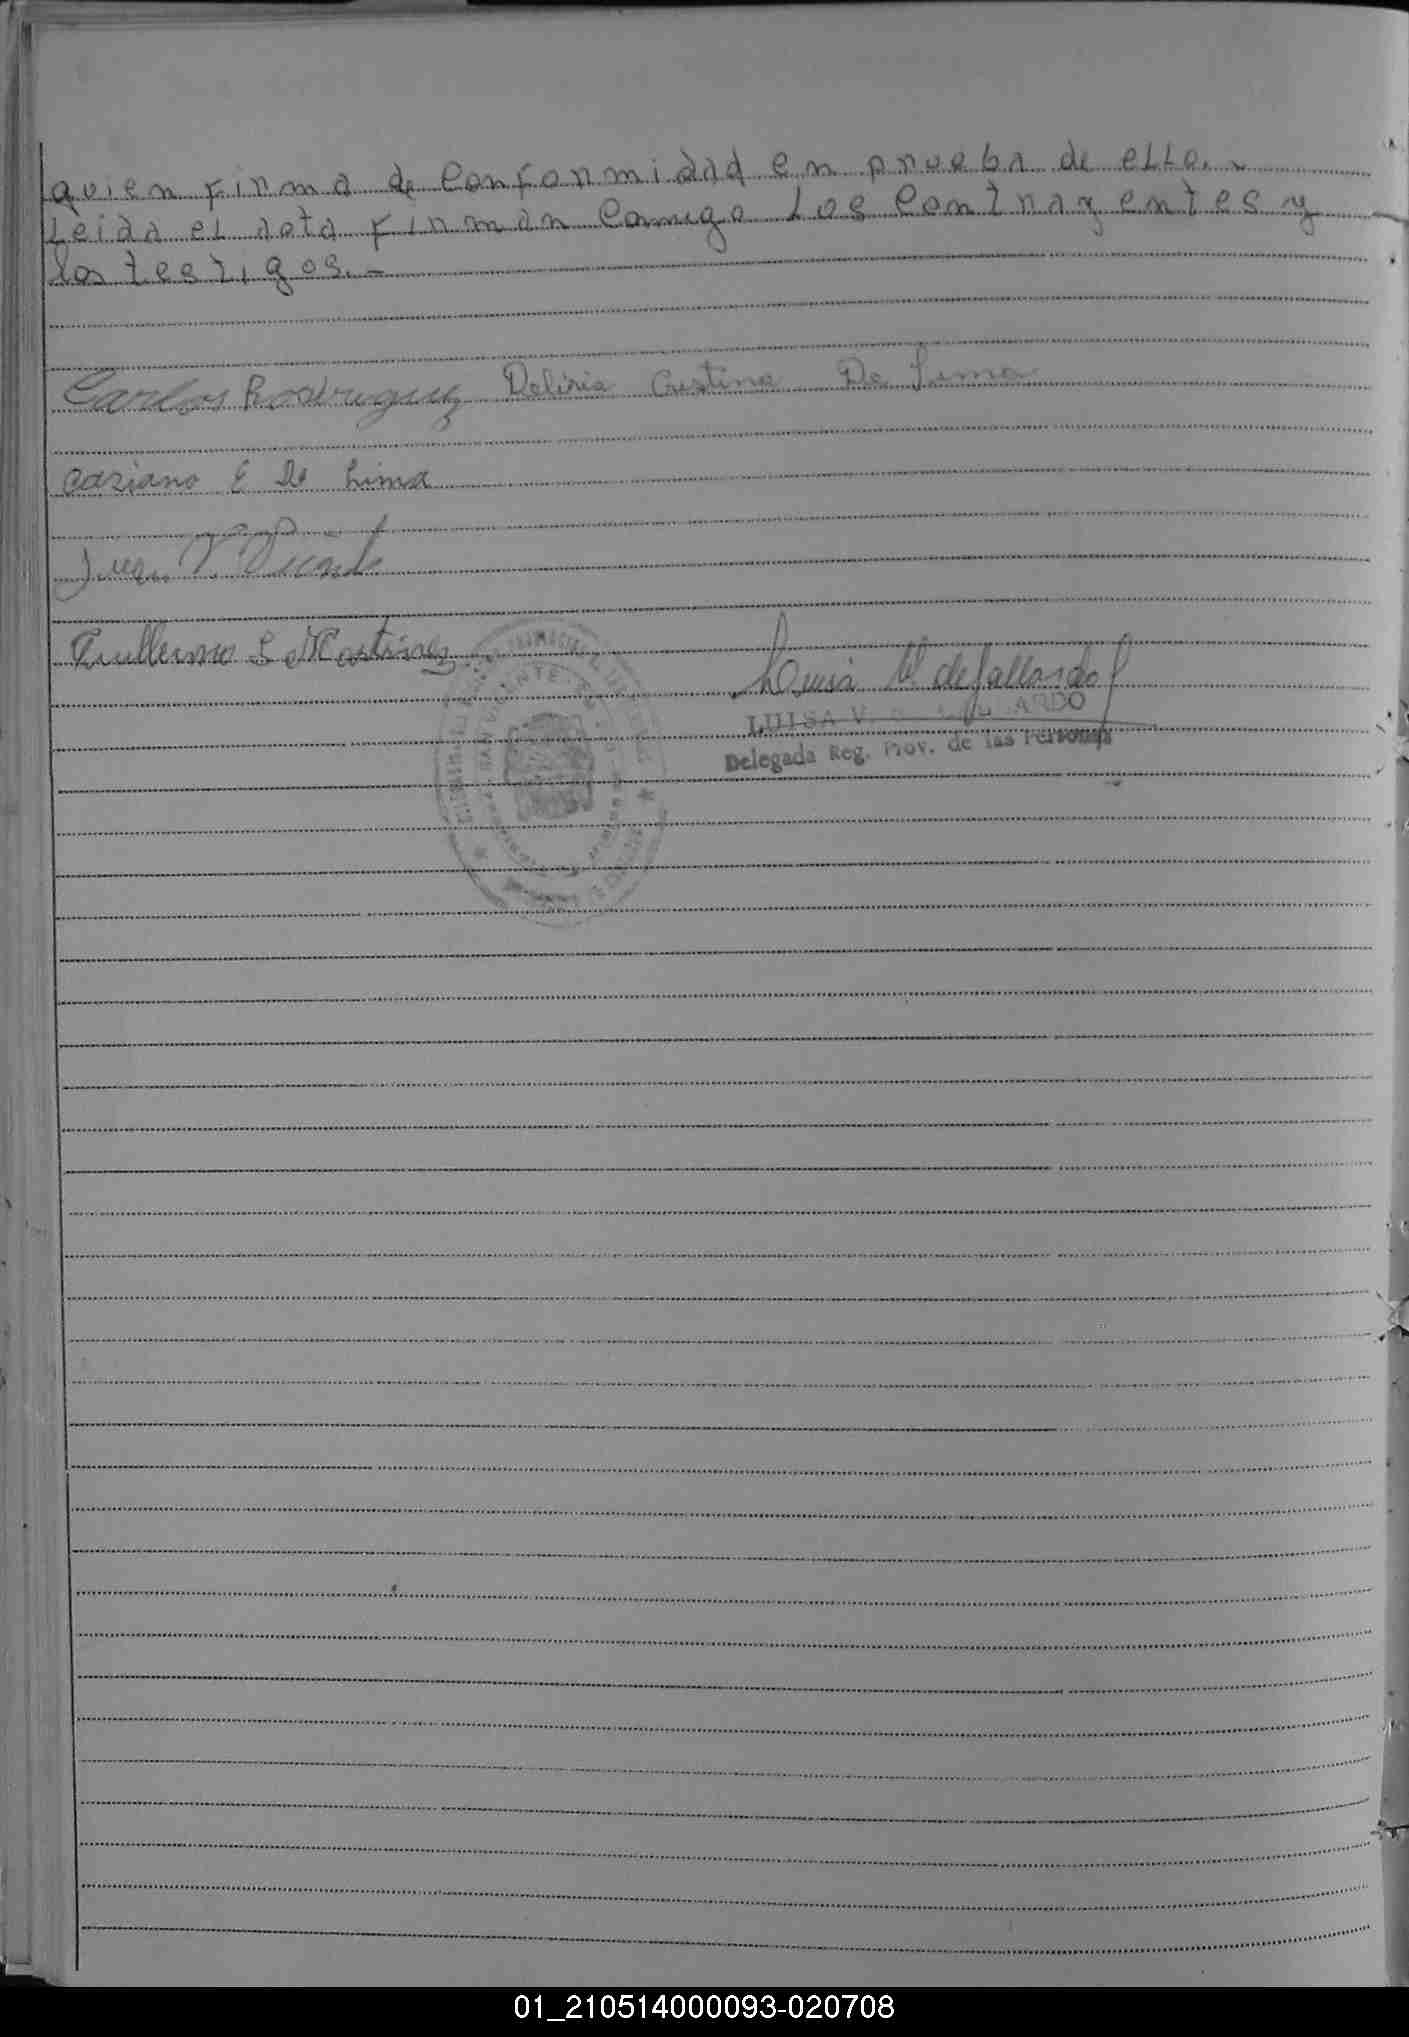 quien firma de conformidad en prueba de ello.-
Leida el acta firman conmigo los contrayentes y
los testigos.-
Carlos Rodriguez Deliria Cristina De Lima
E De Lima
Juan V.
Guillermo S Martinez
Luisa V. de Gallardo
LUISA V. ARDO
Delegada Reg. Prov. de las Personas
SAN VICENTE
01_210514000093-020708